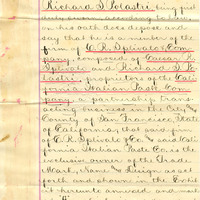 Richard J. Polastri being just
duly sworn according to law
on his oath does depose and
say that he is a member of the
firm of C. R. Splivalo & Com-
pany, composed of Caesar R.
Splivalo and Richard J. Po-
lastri, proprietors of the Cali-
fornia Italian Paste Com-
pany, a partnership trans-
acting business in the City and
County of San Francisco, State
of California; that said firm
of C. R. Splivalo & Co. said Cali-
fornia Italian Paste Co. is the
exclusive owner of the Trade
Mark, Name & design as set
forth and shown in the Exhib-
it hereunto annexed and